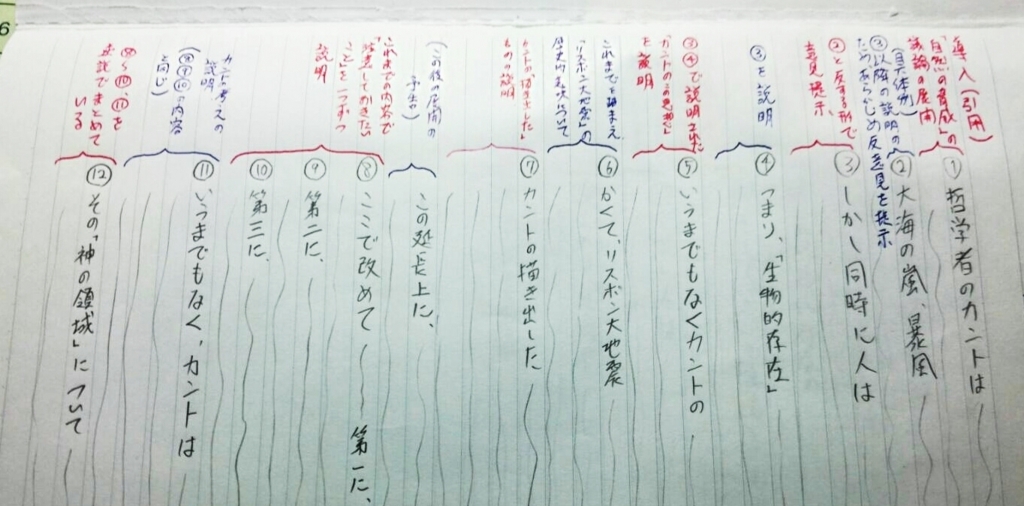 6
導入(引用)
「自然の脅威」の
議論の展開
(具体例)
③以降の説明の
ためあらかじめ反意見を提示
②と反する形で
意見提示、
③を説明
③④で説明された
「カントのこの思想」
を説明
これまでを踏まえ
「リスボン大地震」の
について
カントの「描き出した」
ものの説明
(この後の展開の
これまでの内容で
ことを一つずつ
説明
カントの考えの
説明
(⑧⑨⑩の内容
と同じ)
⑧~⑩、⑪を
逆説でまとめて
いる
①哲学者のカントは
②大海の嵐、暴風
③しかし同時に人は
④つまり、「生物的存在」
⑤いうまでもなくカントの
⑥かくて、リスボン大地震
⑦カントの描き出した
この延長上に、
⑧ここで改めて 第一に、
⑨第二に、
⑩第三に、
⑪いうまでもなく、カントは
⑫その「神の領域」について